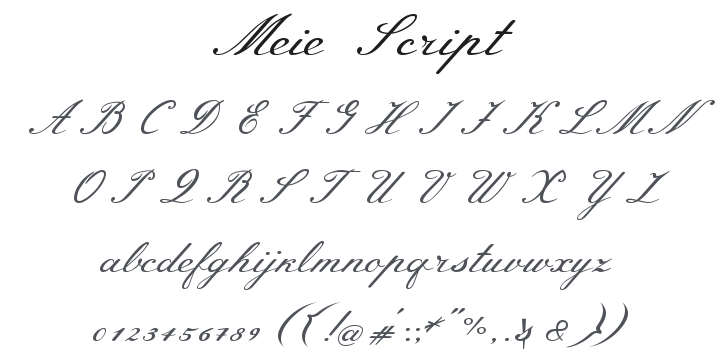 Meie Script
A B C D E F G H I J K L M N
O P Q R S T U V W X Y Z
abcdefghijklmnopqrstuvwxyz
0123456789 ({!@#':;*"%,.$&})